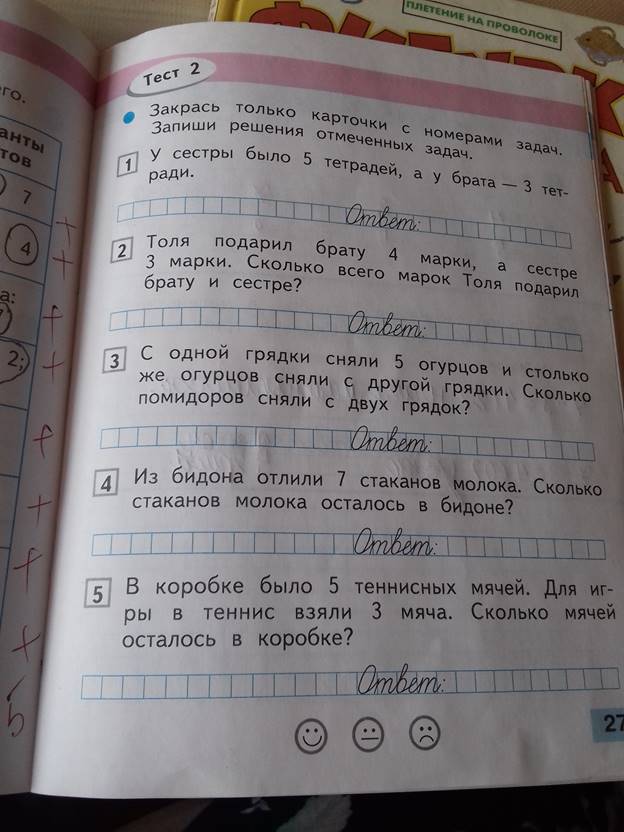 ПЛЕТЕНИЕ НА ПРОВОЛОКЕ
Тест 2
Закрась только карточки с номерами задач.
Запиши решения отмеченных задач.
1 У сестры было 5 тетрадей, а у брата — 3 тет-
ради.
Ответ:
2 Толя подарил брату 4 марки, а сестре
3 марки. Сколько всего марок Толя подарил
брату и сестре?
Ответ:
3 С одной грядки сняли 5 огурцов и столько
же огурцов сняли с другой грядки. Сколько
помидоров сняли с двух грядок?
Ответ:
4 Из бидона отлили 7 стаканов молока. Сколько
стаканов молока осталось в бидоне?
Ответ:
5 В коробке было 5 теннисных мячей. Для иг-
ры в теннис взяли 3 мяча. Сколько мячей
осталось в коробке?
Ответ:
27
его.
анты
тов
7
4
а:
2;
+
+
+
+
+
+
+
+
5